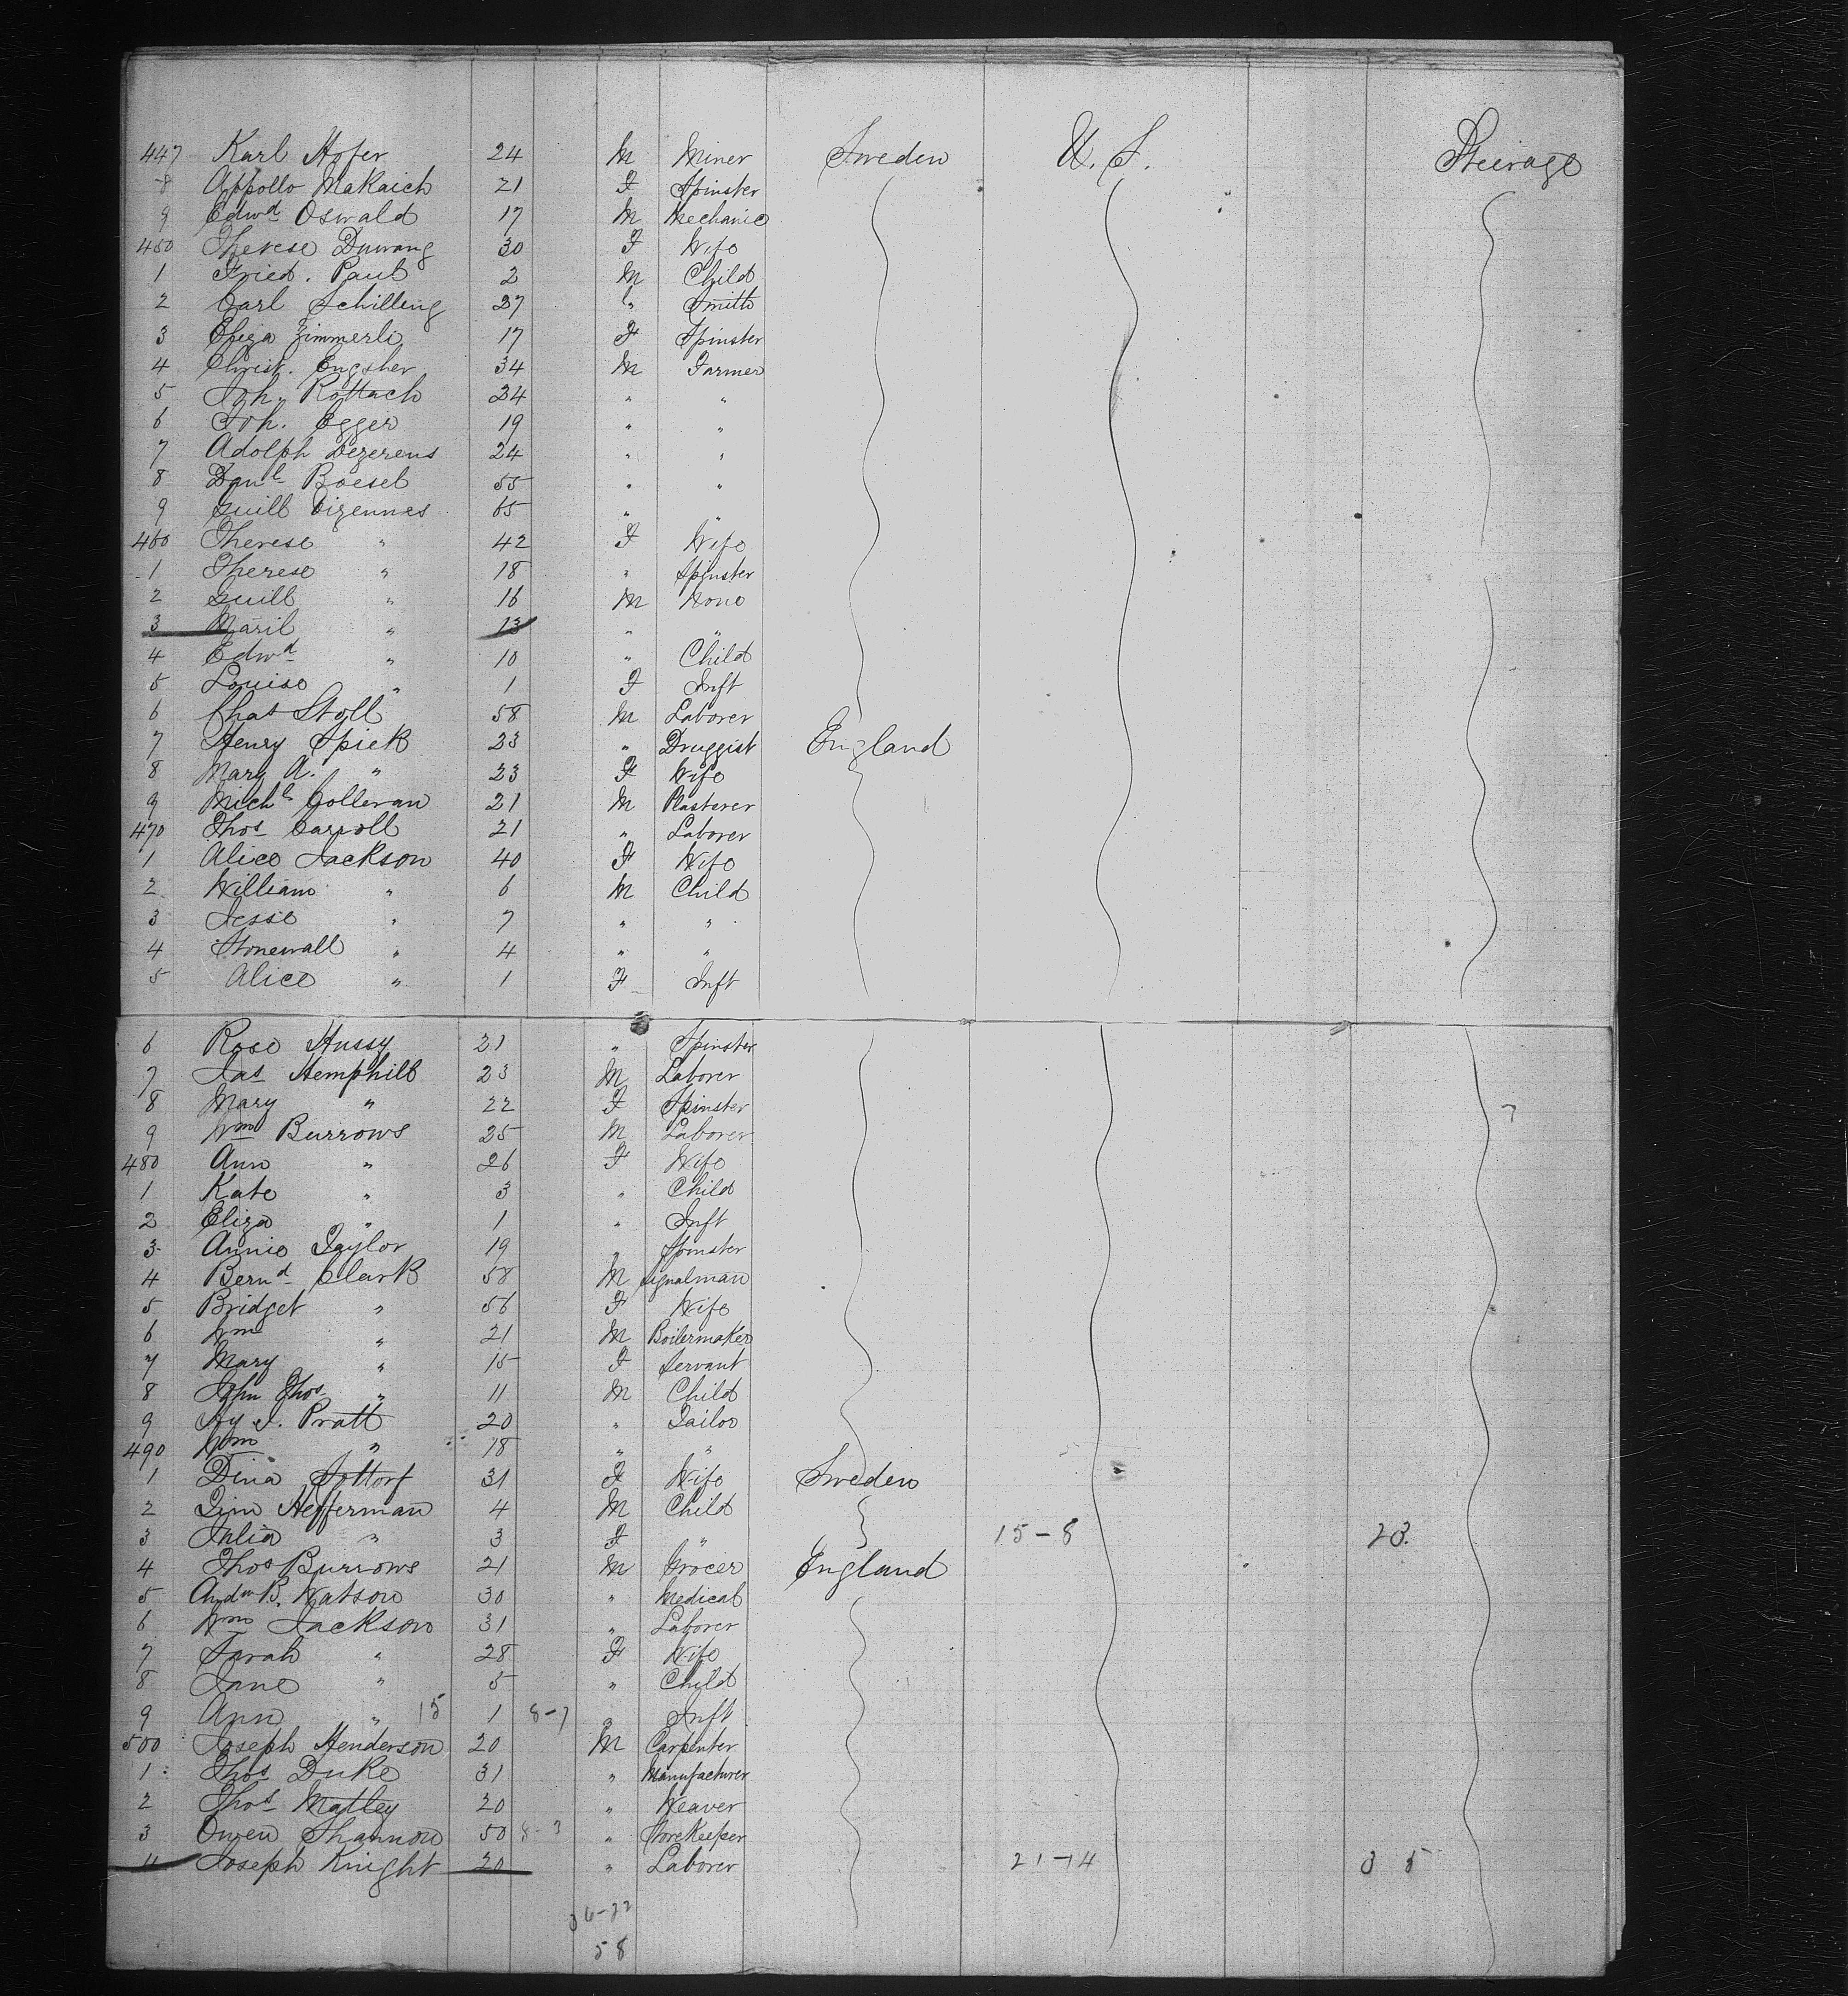 447 Karl Hofer 24 M Miner Sweden U. S. Steirage
8 Appollo Makaich 21 F Spinster
9 Edwd Oswald 17 M Mechanic
450 Therese Duwang 30 F Wife
1 Fried. Paul 2 M Child
2 Carl Schilling 27 " Smith
3 Eliza Zimmerli 17 F Spinster
4 Christ. Engsher 34 M Farmer
5 Joh. Rottach 24 " "
6 Joh. Egger 19 " "
7 Adolph Dezerens 24 " "
8 Danl Boesel 55 " "
9 Guill Dizennes 65 " "
460 Therese " 42 F Wife
1 Therese " 18 " Spinster
2 Guill " 16 M None
3 Maril " 13 " "
4 Edwd " 10 " Child
5 Louise " 1 F Inft
6 Chas Stoll 58 M Laborer
7 Henry Spiek 23 " Druggist England
8 Mary A. " 23 F Wife
9 Michl Golleran 21 M Plasterer
470 Thos Carroll 21 " Laborer
1 Alice Jackson 40 F Wife
2 William " 6 M Child
3 Jesse " 7 " "
4 Stonewall " 4 " "
5 Alice " 1 F Inft
6 Rose Hussy 21 " Spinster
7 Jas Hemphill 23 M Laborer
8 Mary " 22 F Spinster
9 Wm Burrows 25 M Laborer
480 Ann " 26 F Wife
1 Kate " 3 " Child
2 Eliza " 1 " Inft
3 Annie Taylor 19 " Spinster
4 Bernd Clark 58 M Signalman
5 Bridget " 56 F Wife
6 Wm " 21 M Boilermaker
7 Mary " 15 F Servant
8 John Thos " 11 M Child
9 Hy J. Pratt 20 " Tailor
490 Wm " 18 " "
1 Dina Sottorf 31 F Wife Sweden
2 Tim Hefferman 4 M Child
3 Julia " 3 F " 15-8 23.
4 Thos Burrows 21 M Grocer England
5 Andw B. Watson 30 " Medical
6 Wm Jackson 31 " Laborer
7 Sarah " 28 F Wife
8 Jane " 5 " Child
9 Ann " 15 1 8-7 " Inft
500 Joseph Henderson 20 M Carpenter
1 Thos Duke 31 " Manufacturer
2 Thos Matley 20 " Weaver
3 Owen Shannon 50 8-3 " Storekeeper
4 Joseph Knight 20 " Laborer 21-14 35
36-22
58